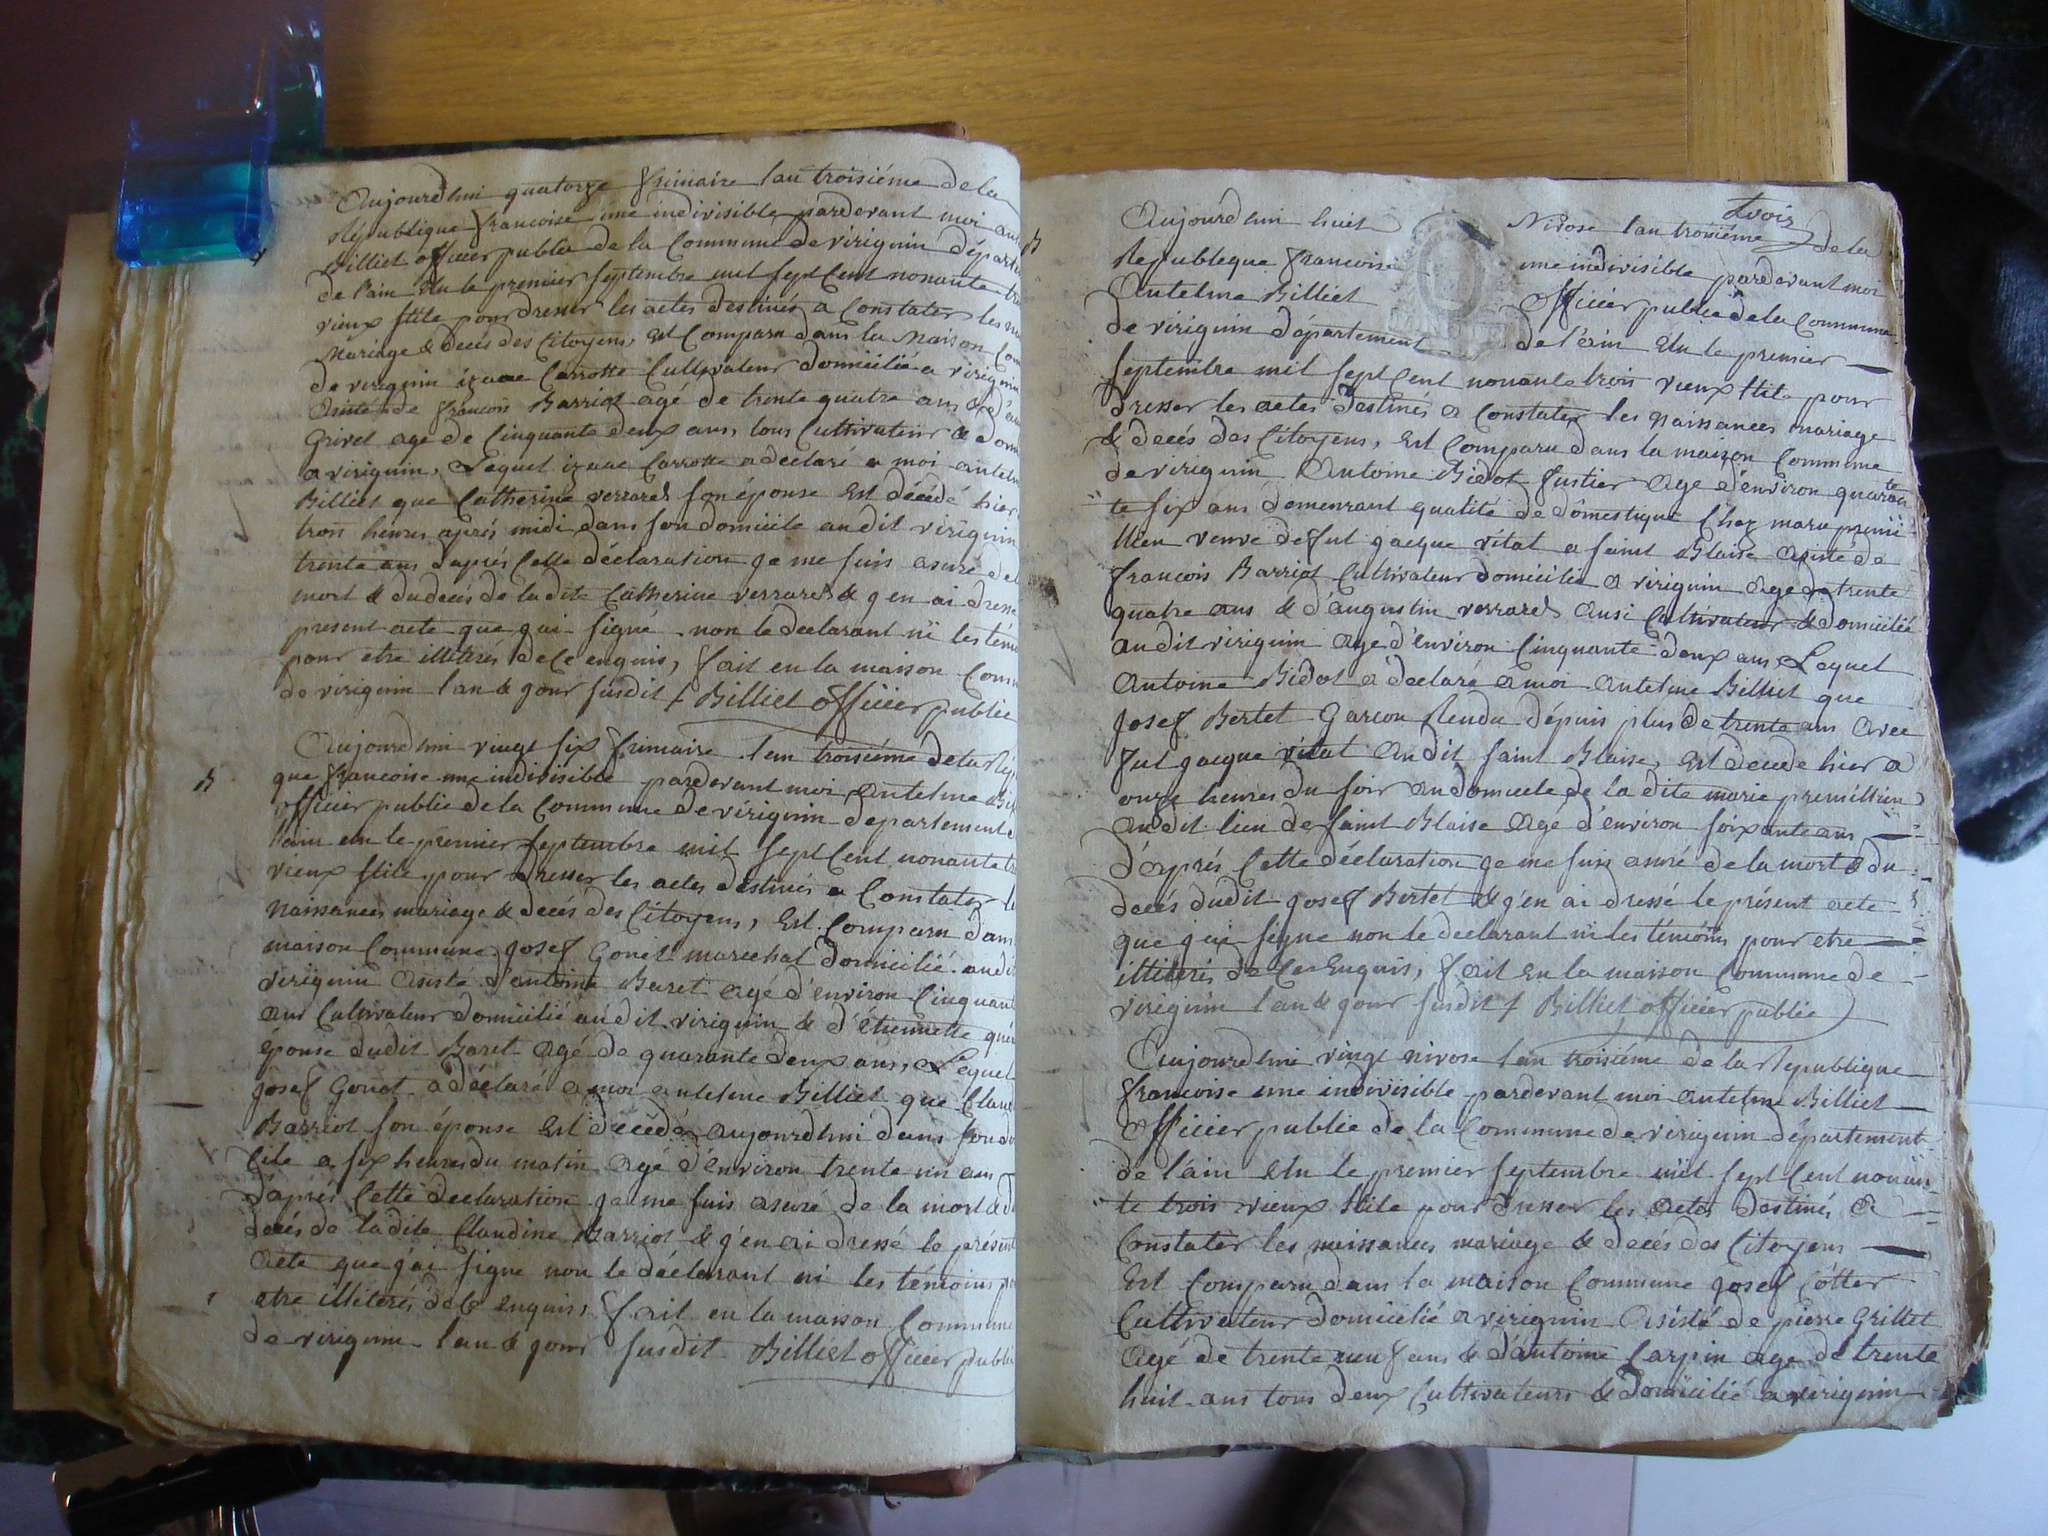 Aujourdhui quatorze frimaire lan troisiéme de la
République francoise une indivisible pardevant moi an
Billiet officier public de la Commune de virignin départ
de l'ain elu le premier septembre mil sept Cent nonante tr
vieux stile pour dresser les actes destinés a Constater les na
Mariage & decés des Citoyens, est Comparu dans la Maison Com
de virignin izaac Carrotte Cultivateur domicilié a virignin
Asisté de francois Barriot agé de trente quatre ans & d'au
Grivel agé de Cinquante deux ans, tous Cultivateur & dom
a virignin, Lequel izaac Carrotte a declaré a moi antelm
Billiet que Catherine verrared son épouse est décédé hier
trois heures aprés midi dans son domicile audit virignin
trente ans d'aprés Cette déclaration je me suis asuré de
mort & du decés de la dite Catherine verrared & j en ai dressé
present acte que j'ai signé non le declarant ni les témo
pour etre illiterés de Ce enquis, fait en la maison Com
de virignin l an & jour susdit / Billiet officier public
Aujourdhui vingt six frimaire l an troisiéme de la Rép
B
que francoise une indivisible pardevant moi antelme Bil
officier public de la Commune de virignin departement
l'ain elu le premier septembre mil sept Cent nonante tr
vieux stile pour dresser les actes destinés a Constater le
Naissances mariage & decés des Citoyens, Est Comparu dans
maison Commune Josef Gonet marechal domicilié audi
virignin Asisté d'antoine Baret agé d'environ Cinquant
ans Cultivateur domicilié audit virignin & d'étiennette
épouse dudit Baret agé de quarante deux ans, Lequel
Josef Gonet a déclaré a moi antelme Billiet que Clau
Barriot son épouse est décédé aujourdhui dans son do
cile a six heures du matin agé d'environ trente un ans
d'aprés Cette declaration je me suis asuré de la mort & d
decés de ladite Claudine Barriot & j'en ai dressé le présent
acte que j'ai signe non le déclarant ni les témoins po
etre illiterés de Ce enquis, fait en la maison Commune
de virignin l an & jour susdit Billiet officier public
trois
B
Aujourdhui huit Nivose l an troisiéme de la
Republique francoise une indivisible pardevant moi
Antelme Billiet officier public de la Commune
de virignin département de l'ain Elu le premier
septembre mil sept Cent nonante trois vieux stile pour
dresser les actes destinés a Constater les naissances mariage
& decés des Citoyens, Est Comparu dans la maison Commune
de virignin Antoine Bidot fustier Agé d'environ quaran
te six ans demeurant qualité de domestique Chez marie premi
llieu veuve de fut jacque vitat a saint Blaise Asisté de
francois Barriot Cultivateur domicilié a virignin Agé de trente
quatre ans & d'augustin verrared Ausi Cultivateur & domicilié
audit virignin Agé d'environ Cinquante deux ans Lequel
Antoine Bidot a déclaré a moi Antelme Billiet que
Josef Bertet Garcon Rendu dépuis plus de trente ans avec
fut jacque vitat audit saint Blaise, Est decede hier a
onze heures du soir au domicile de la dite marie premillieu
audit lieu de saint Blaise Agé d'environ soixante ans
d'aprés Cette déclaration je me suis asuré de la mort & du
decés dudit josef Bertet & j'en ai dressé le présent acte
que j'ai signe non le declarant ni les témoins pour etre
illiterés de Ce Enquis, fait en la maison Commune de
virignin l an & jour susdit / Billiet officier public
Aujourdhui vingt nivose l an troisiéme de la Republique
francoise une indivisible pardevant moi Antelme Billiet
officier public de la Commune de virignin département
de l'ain Elu le premier septembre mil sept Cent nonan
te trois vieux stile pour dresser les actes destinés a
Constater les naissances mariage & decés des Citoyens
Est Comparu dans la maison Commune josef Cotter
Cultivateur domicilié a virignin Asisté de pierre Grillet
Agé de trente neuf ans & d'antoine Carpin agé de trente
huit ans tous deux Cultivateurs & domicilié a virignin